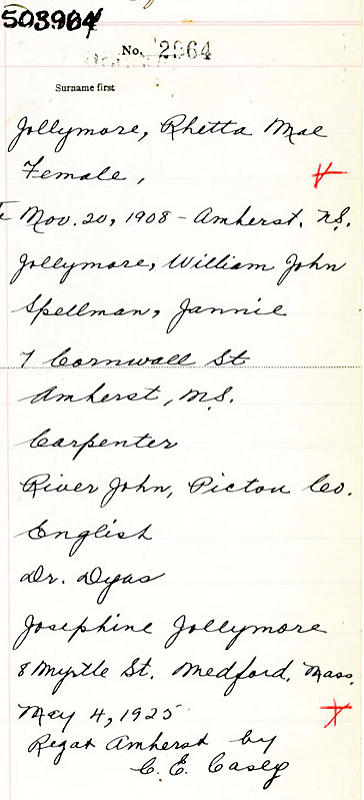 503904
No. 2964
Surname first
Jollymore, Rhetta Mae
Female,
Nov. 20, 1908 - Amherst, N.S.
Jollymore, William John
Spellman, Jannie
7 Cornwall St
Amherst, N.S.
Carpenter
River John, Pictou Co.
English
Dr. Dyas
Josephine Jollymore
8 Myrtle St. Medford, Mass.
May 4, 1925
Regat Amherst by
C. E. Casey